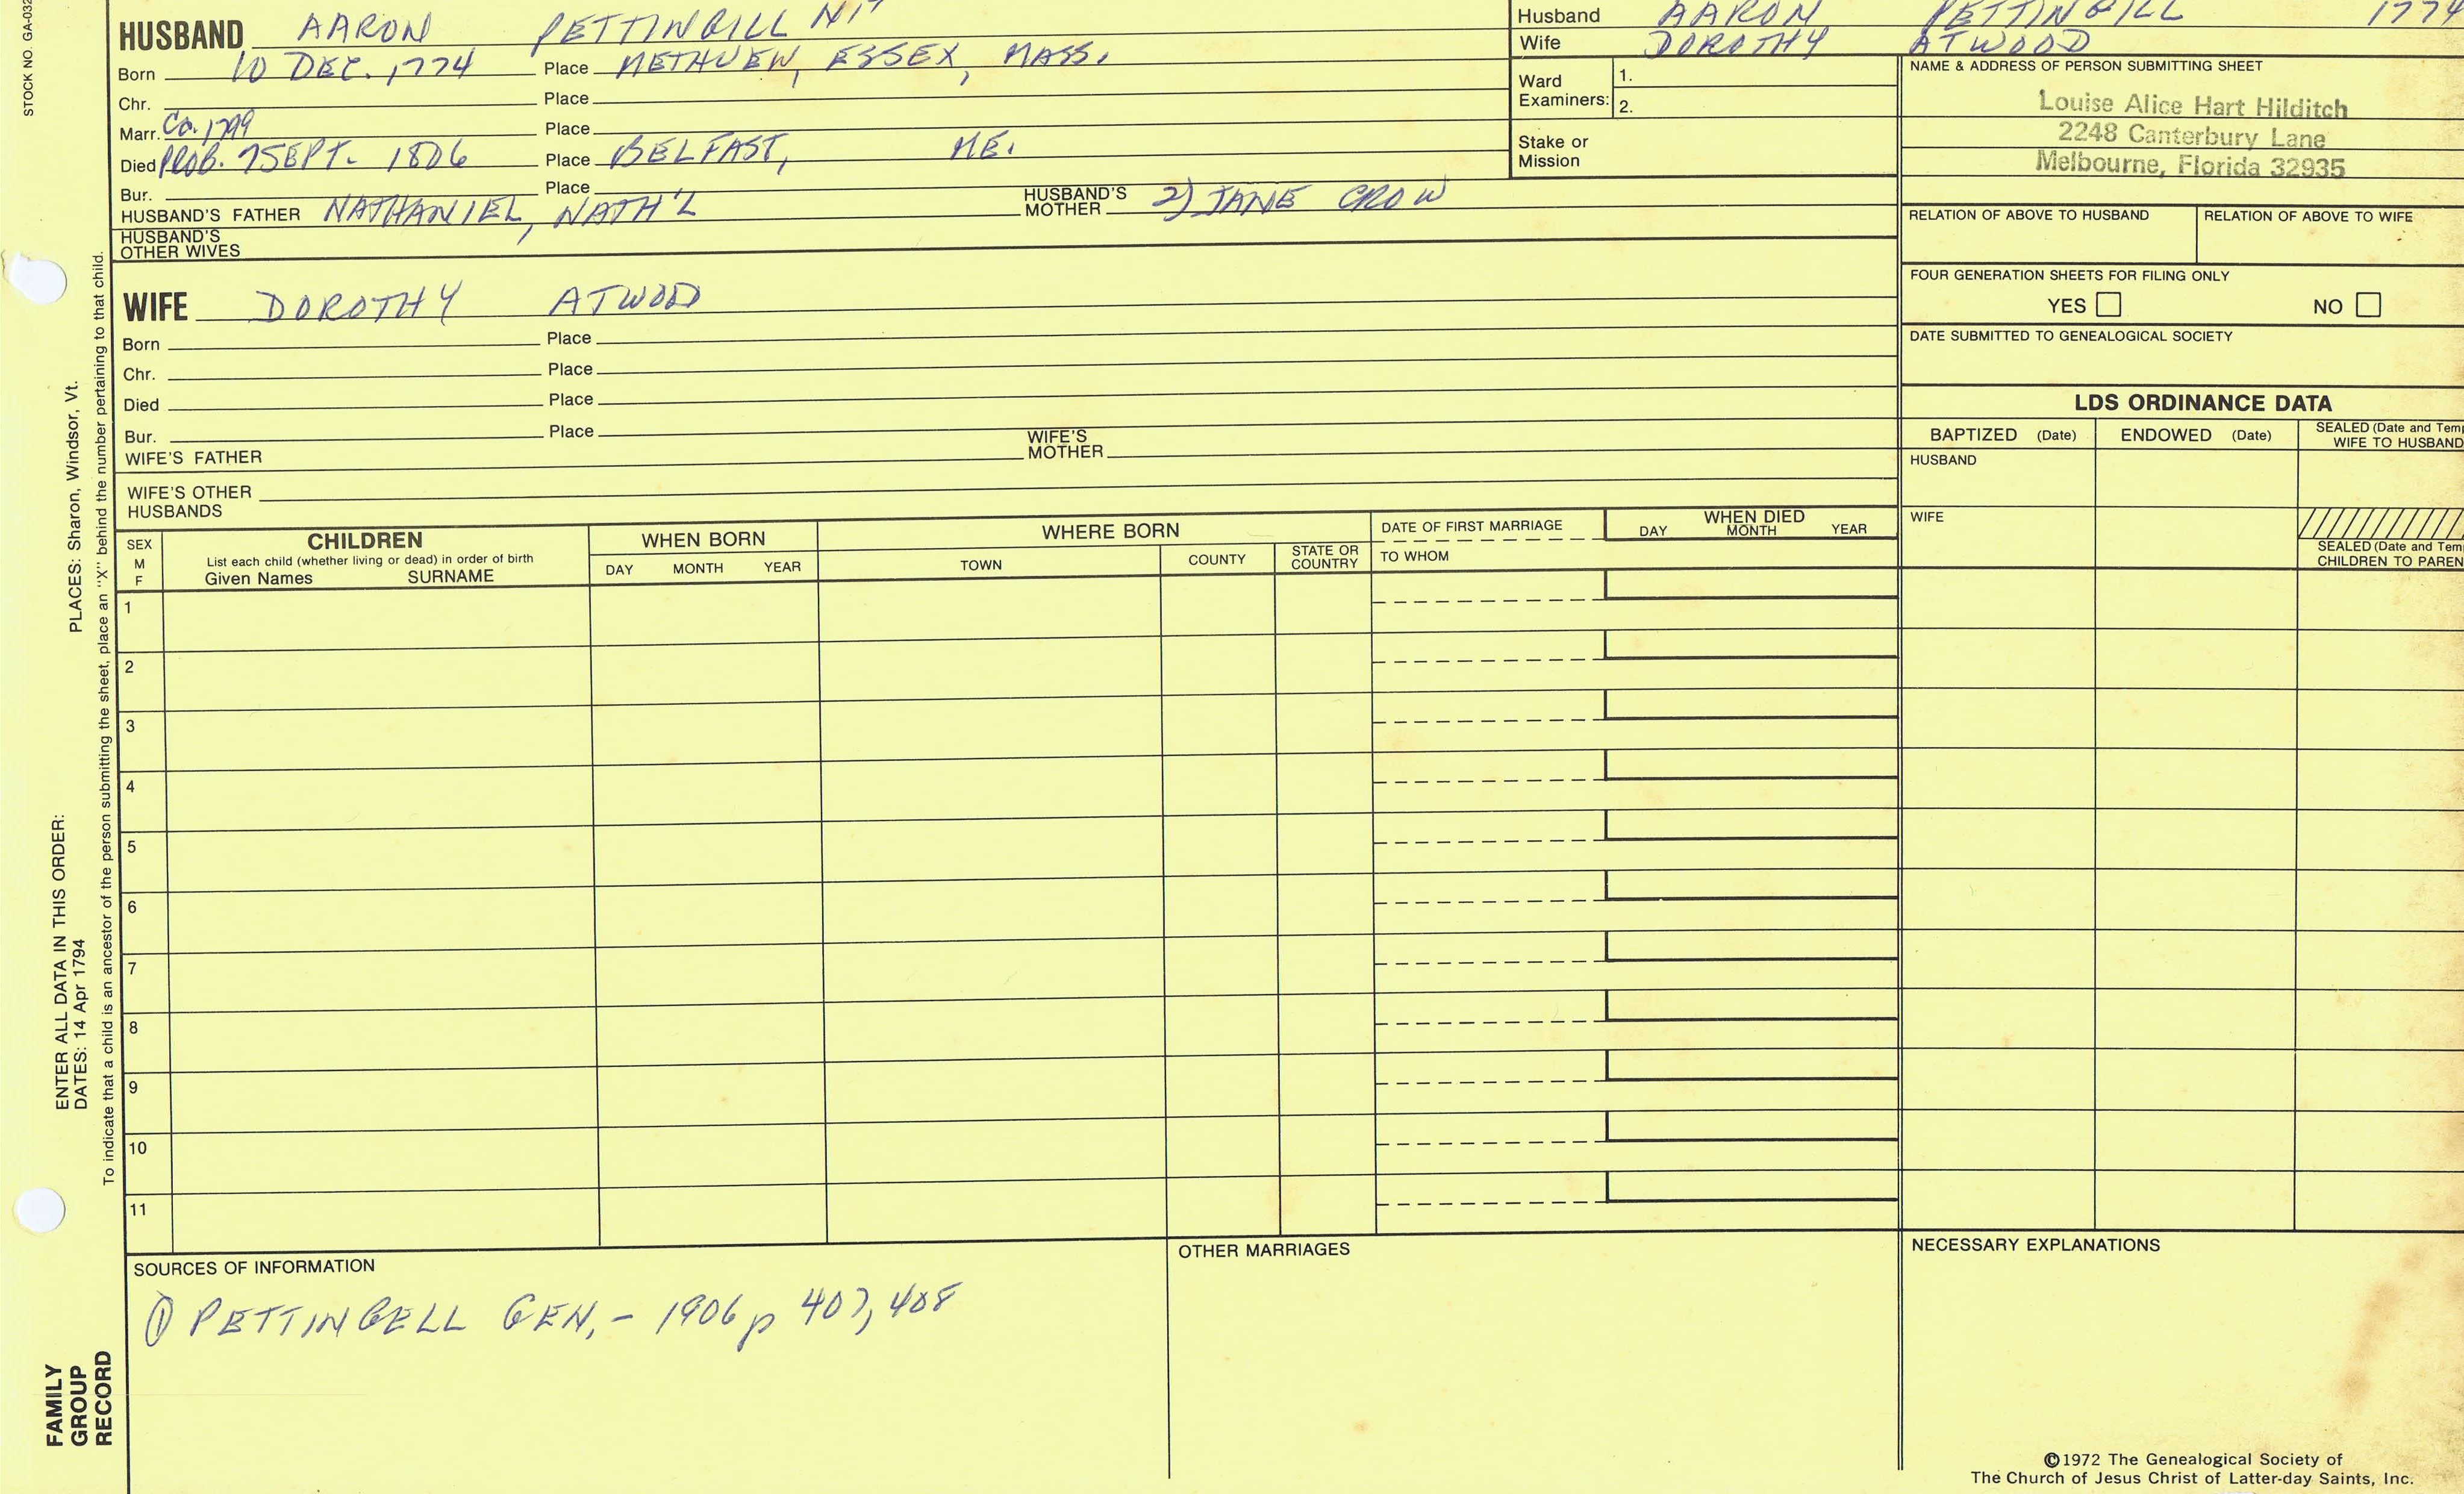 STOCK NO. GA-032
HUSBAND AARON PETTINGILL
Husband AARON PETTINGILL 1774
Wife DOROTHY ATWOOD
Born 10 DEC. 1774 Place METHUEN, ESSEX, MASS.
Chr. Place
Marr. Ca. 1799 Place
Died PROB. 7 SEPT. 1806 Place BELFAST, ME.
Bur. Place
HUSBAND'S FATHER NATHANIEL, NATH'L
HUSBAND'S MOTHER 2) JANE CROW
HUSBAND'S OTHER WIVES
Ward Examiners: 1.
2.
Stake or Mission
NAME & ADDRESS OF PERSON SUBMITTING SHEET
Louise Alice Hart Hilditch
2248 Canterbury Lane
Melbourne, Florida 32935
RELATION OF ABOVE TO HUSBAND RELATION OF ABOVE TO WIFE
FOUR GENERATION SHEETS FOR FILING ONLY
YES NO
DATE SUBMITTED TO GENEALOGICAL SOCIETY
WIFE DOROTHY ATWOOD
Born Place
Chr. Place
Died Place
Bur. Place
WIFE'S FATHER
WIFE'S MOTHER
WIFE'S OTHER HUSBANDS
LDS ORDINANCE DATA
BAPTIZED (Date) ENDOWED (Date) SEALED (Date and Temp
WIFE TO HUSBAND
HUSBAND
WIFE
SEALED (Date and Tem
CHILDREN TO PAREN
SEX
M
F
CHILDREN
List each child (whether living or dead) in order of birth
Given Names SURNAME
WHEN BORN
DAY MONTH YEAR
WHERE BORN
TOWN COUNTY STATE OR COUNTRY
DATE OF FIRST MARRIAGE
TO WHOM
WHEN DIED
DAY MONTH YEAR
1
2
3
4
5
6
7
8
9
10
11
SOURCES OF INFORMATION
① PETTINGELL GEN. - 1906 p 407, 408
OTHER MARRIAGES
NECESSARY EXPLANATIONS
©1972 The Genealogical Society of
The Church of Jesus Christ of Latter-day Saints, Inc.
FAMILY
GROUP
RECORD
ENTER ALL DATA IN THIS ORDER:
DATES: 14 Apr 1794
PLACES: Sharon, Windsor, Vt.
To indicate that a child is an ancestor of the person submitting the sheet, place an "X" behind the number pertaining to that child.